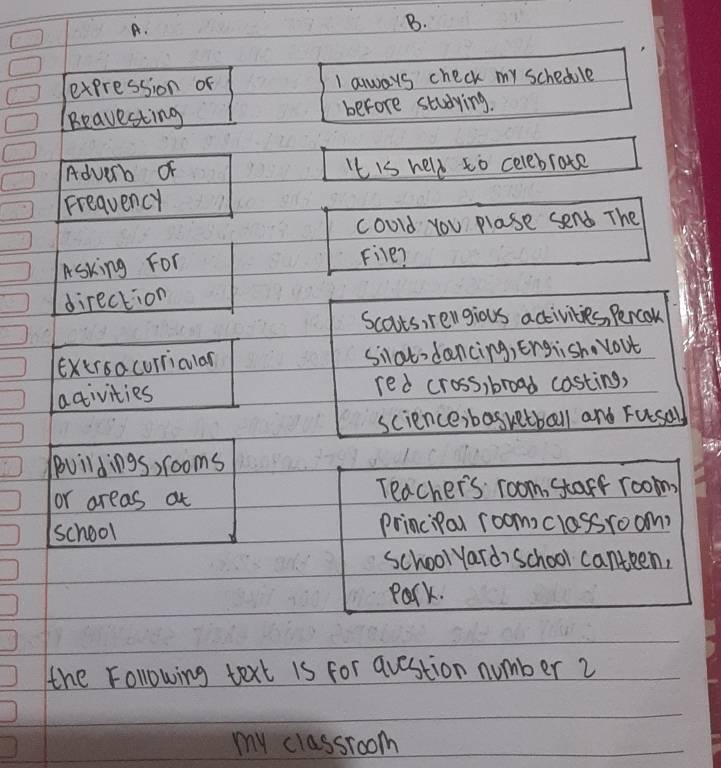 A.
B.
expression of
Reavesting
Adverb of
Frequency
Asking For
direction
Extraacurricular
activities
Buildings, rooms
or areas at
school
I always check my schedule
before studying.
It is held to celebrate
Could you Plase send The
File?
Scouts, religious activities, Percak
Silat, dancing, English, Yout
red cross, broad casting,
science, basketball and Futsal
Teacher's room, staff room,
Principal room, classroom,
School Yard, School canteen,
Park.
the Following text is for question number 2
my classroom